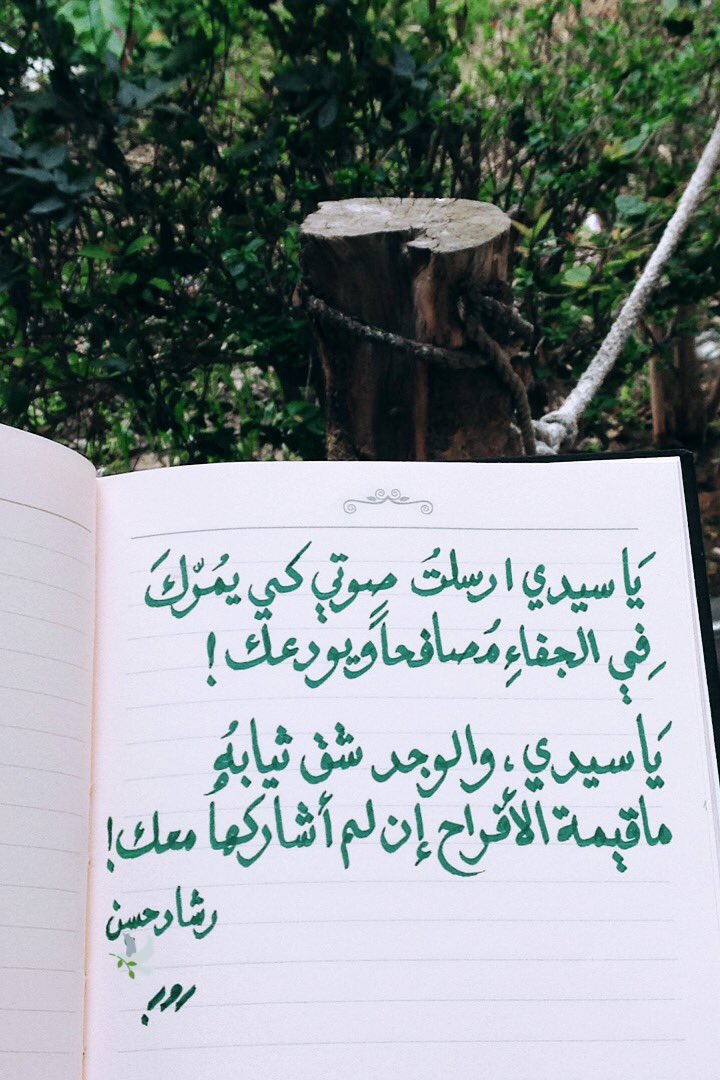 يَا سيدي ارسلتُ صوتي كي يمُرّكَ
فِي الجفاءِ مُصافحاً ويودعك !
يَا سيدي ، والوجد شق ثيابهُ
ماقيمة الأفراح إن لم أشاركها معك !
رشاد حسن